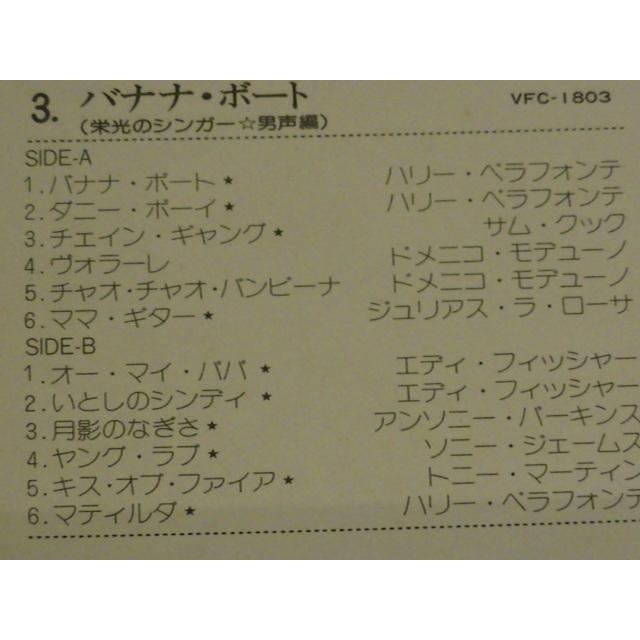 3. バナナ・ボート VFC-1803
(栄光のシンガー☆男声編)
SIDE-A
1.バナナ・ボート★ ハリー・ベラフォンテ
2.ダニー・ボーイ★ ハリー・ベラフォンテ
3.チェイン・ギャング★ サム・クック
4.ヴォラーレ ドメニコ・モデューノ
5.チャオ・チャオ・バンビーナ ドメニコ・モデューノ
6.ママ・ギター★ ジュリアス・ラ・ローサ
SIDE-B
1.オー・マイ・パパ★ エディ・フィッシャー
2.いとしのシンディ★ エディ・フィッシャー
3.月影のなぎさ★ アンソニー・パーキンス
4.ヤング・ラブ★ ソニー・ジェームス
5.キス・オブ・ファイア★ トニー・マーティン
6.マティルダ★ ハリー・ベラフォンテ